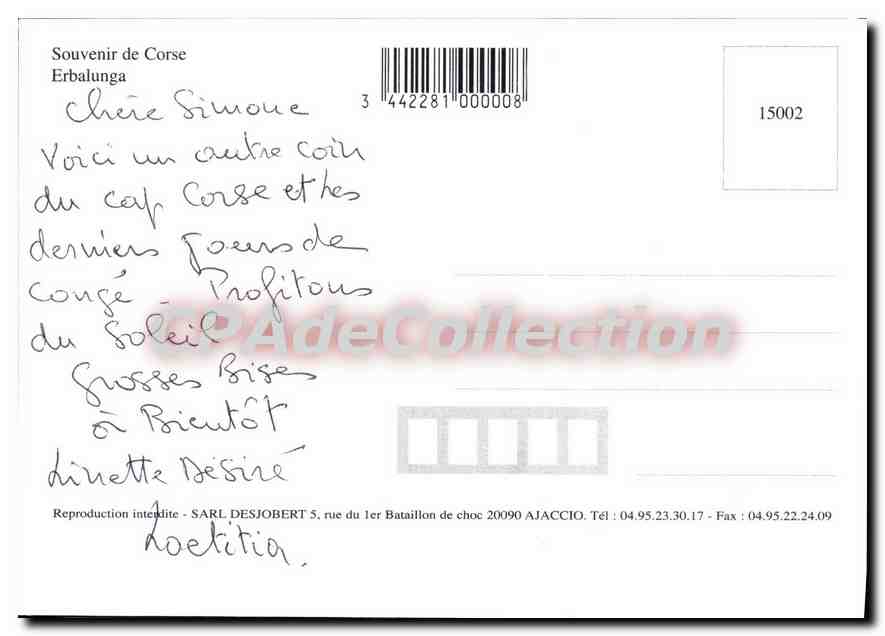 Souvenir de Corse
Erbalunga
3 442281 000008
15002
Chère Simone
Voici un autre coin
du cap Corse et les
derniers jours de
congé - Profitons
du Soleil
CPAdeCollection
Grosses Bises
à Bientôt
Linette Désiré
Reproduction interdite - SARL DESJOBERT 5, rue du 1er Bataillon de choc 20090 AJACCIO. Tél : 04.95.23.30.17 - Fax : 04.95.22.24.09
Laetitia.